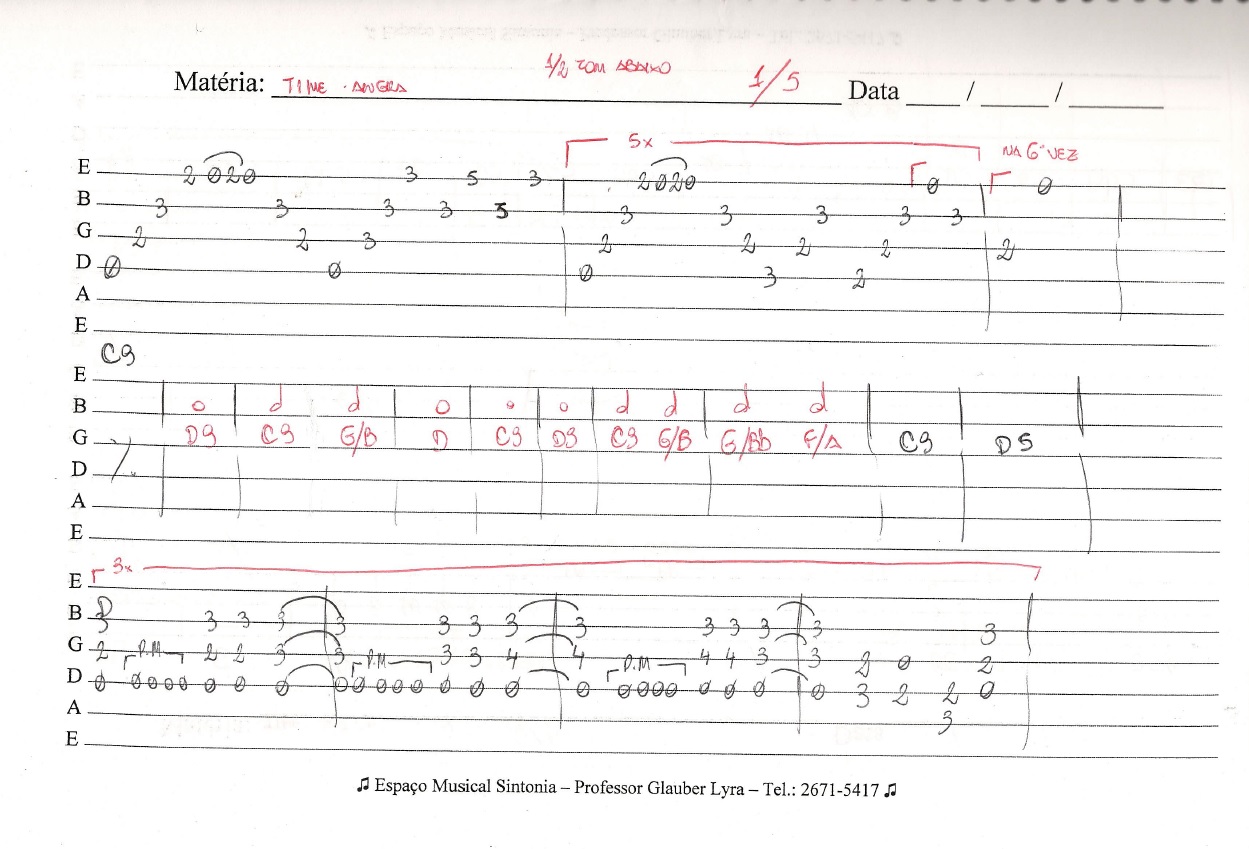 1/2 TOM ABAIXO
Matéria: TIME - ANGRA 1/5 Data ____ / _____ / _______
5x NA 6ª VEZ
E 2 0 2 0 3 5 3 2 0 2 0 0 0
B 3 3 3 3 5 3 3 3 3 3
G 2 2 3 2 2 2 2 2
D 0 0 0 3 2
A
E
C9
E
B o d d o o o d d d d
G D9 C9 G/B D C9 D9 C9 G/B G/Bb F/A C9 D5
D ٪
A
E
E 3x
D
B 3 3 3 3 3 3 3 3 3 3 3 3 3 3
G 2 P.M 2 2 3 3 P.M 3 3 4 4 P.M 4 4 3 3 2 0 2
D 0 0 0 0 0 0 0 0 0 0 0 0 0 0 0 0 0 0 0 0 0 0 0 0 0 3 2 2 0
A 3
E
♫ Espaço Musical Sintonia – Professor Glauber Lyra – Tel.: 2671-5417 ♫